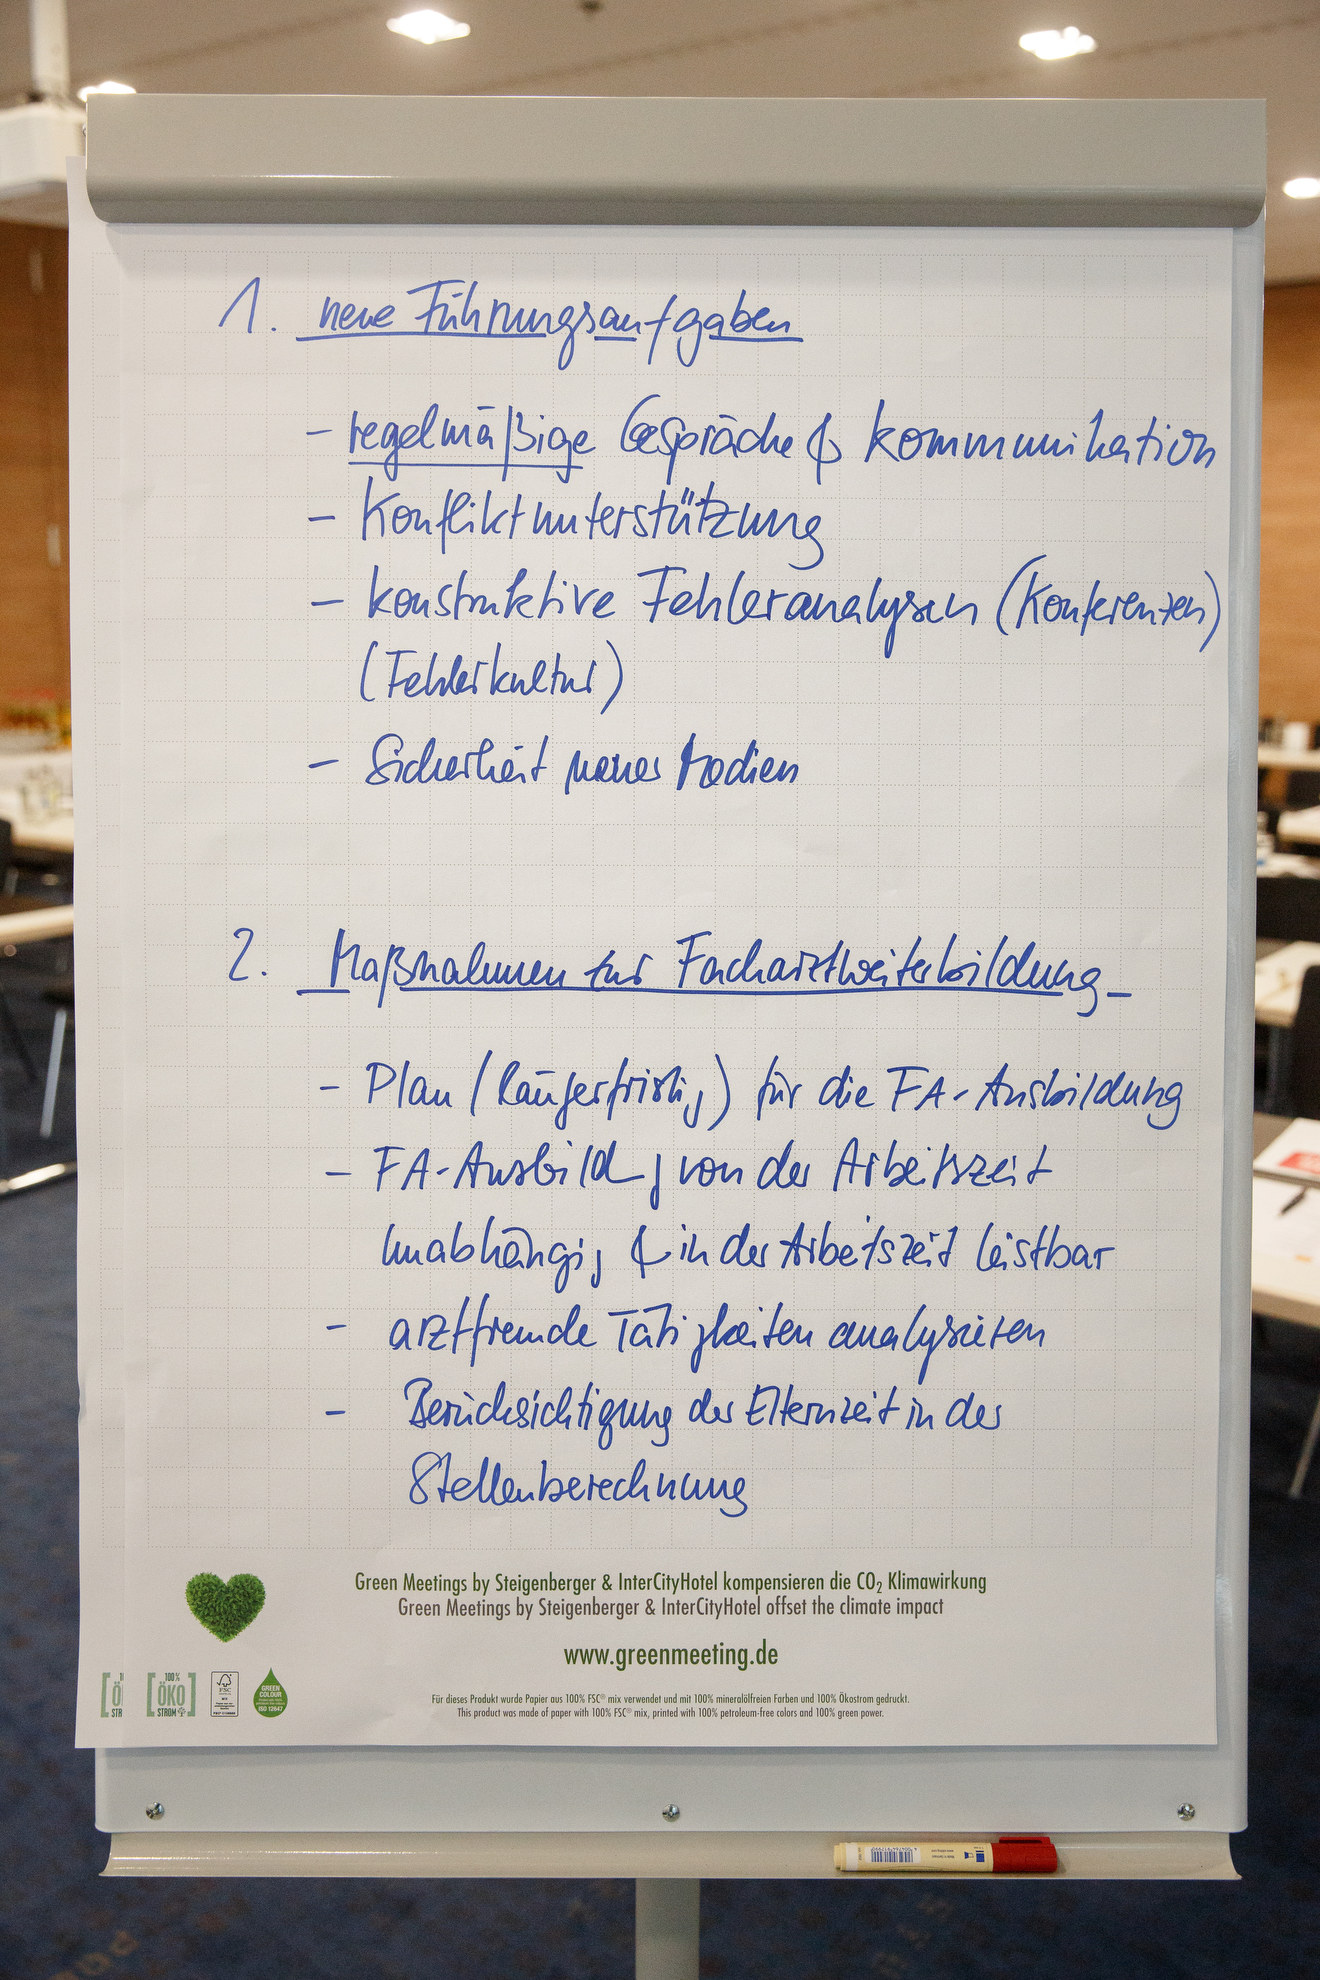 1. neue Führungsaufgaben
- regelmäßige Gespräche & Kommunikation
- Konfliktunterstützung
- konstruktive Fehleranalysen (Konferenzen)
(Fehlerkultur)
- Sicherheit neuer Medien
2. Maßnahmen zur Facharztweiterbildung
- Plan (längerfristig) für die FA-Ausbildung
- FA-Ausbildg von der Arbeitszeit
unabhängig & in der Arbeitszeit leistbar
- arztfremde Tätigkeiten analysieren
- Berücksichtigung der Elternzeit in der
Stellenberechnung
Green Meetings by Steigenberger & InterCityHotel kompensieren die CO₂ Klimawirkung
Green Meetings by Steigenberger & InterCityHotel offset the climate impact
www.greenmeeting.de
Für dieses Produkt wurde Papier aus 100% FSC® mix verwendet und mit 100% mineralölfreien Farben und 100% Ökostrom gedruckt.
This product was made of paper with 100% FSC® mix, printed with 100% petroleum-free colors and 100% green power.
100%
ÖKO
STROM
FSC
GREEN
COLOUR
ISO 12647